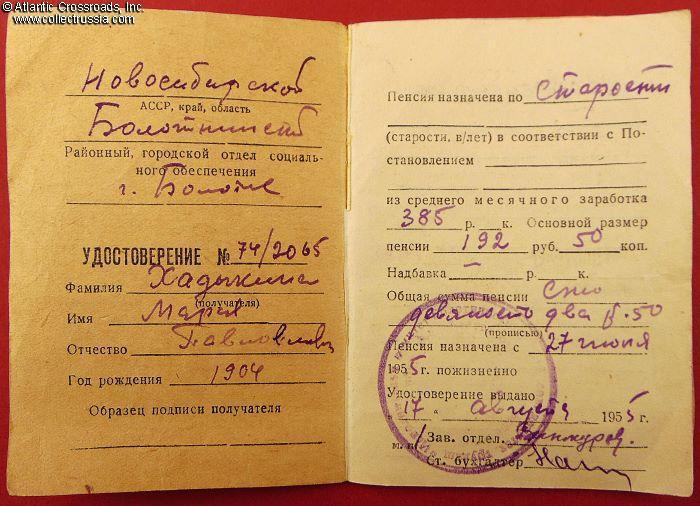 © Atlantic Crossroads, Inc.
www.collectrussia.com
Новосибирской
АССР, край, область
Болотнинский
Районный, городской отдел социаль-
ного обеспечения
г. Болотное
УДОСТОВЕРЕНИЕ № 74/2065
Фамилия Хадыкина
(получателя)
Имя Мария
Отчество Павловна
Год рождения 1904
Образец подписи получателя
Пенсия назначена по старости
(старости, в/лет) в соответствии с По-
становлением
из среднего месячного заработка
385 р. к. Основной размер
пенсии 192 руб. 50 коп.
Надбавка — р. к.
Общая сумма пенсии Сто
девяносто два р. 50
(прописью)
Пенсия назначена с 27 июня
1955г. пожизненно
Удостоверение выдано
"17" августа 1955г.
м. п. Зав. отдел.
Ст. бухгалтер